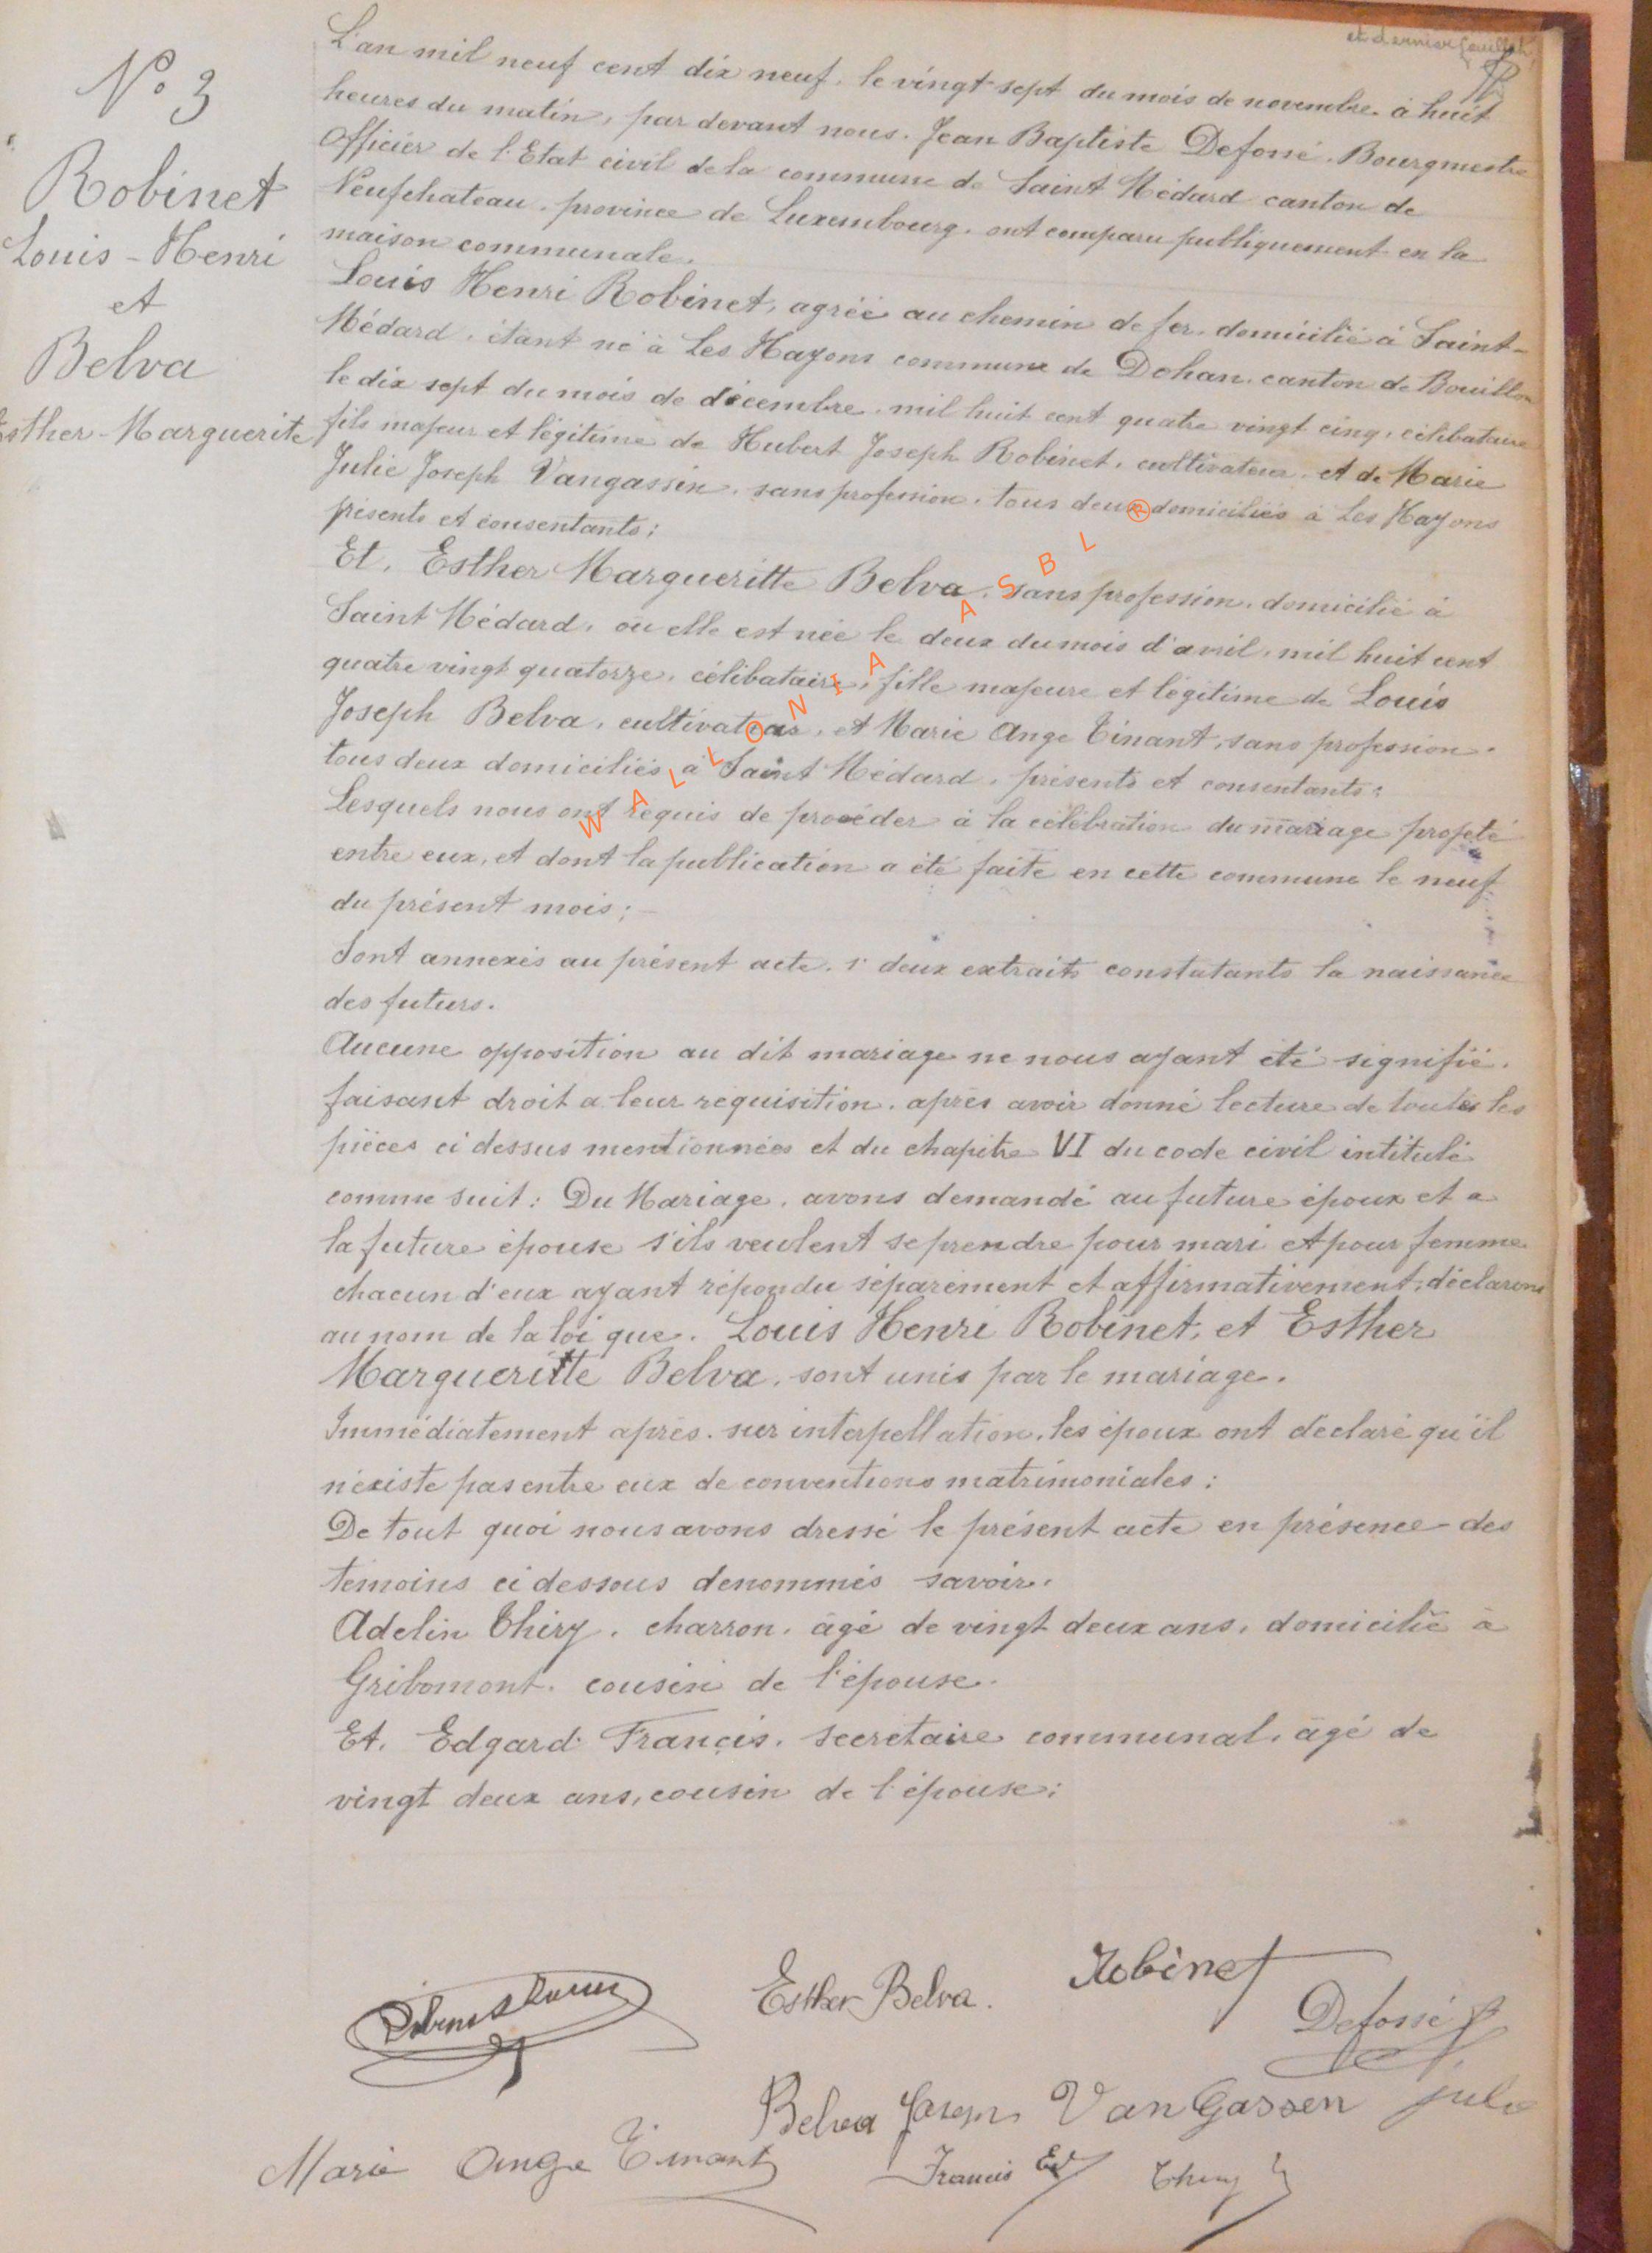 et dernier feuillet
N° 3
Robinet
Louis-Henri
et
Belva
Esther-Marguerite
L'an mil neuf cent dix neuf, le vingt sept du mois de novembre à huit
heures du matin, par devant nous. Jean Baptiste Defossé. Bourgmestre
Officier de l'Etat civil de la commune de Saint Médard canton de
Neufchateau, province de Luxembourg, ont comparu publiquement en la
maison communale.
Louis Henri Robinet, agréé au chemin de fer, domicilié à Saint-
Médard, étant né à Les Hayons commune de Dohan, canton de Bouillon
le dix sept du mois de décembre, mil huit cent quatre vingt cinq, célibataire
fils majeur et légitime de Hubert Joseph Robinet, cultivateur, et de Marie
Julie Joseph Vangassen, sans profession, tous deux domiciliés à Les Hayons
présents et consentants;
Et, Esther Margueritte Belva, sans profession, domicilié à
Saint Médard, où elle est née le deux du mois d'avril, mil huit cent
quatre vingt quatorze, célibataire, fille majeure et légitime de Louis
Joseph Belva, cultivateur, et Marie Ange Tinant, sans profession,
tous deux domiciliés à Saint Médard, présents et consentants;
Lesquels nous ont requis de procéder à la célébration du mariage projeté
entre eux, et dont la publication a été faite en cette commune le neuf
du présent mois;
Sont annexés au présent acte, 1° deux extraits constatants la naissance
des futurs.
Aucune opposition au dit mariage ne nous ayant été signifié,
faisant droit a leur réquisition, après avoir donné lecture de toutes les
pièces ci dessus mentionnées et du chapitre VI du code civil intitulé
comme suit: Du Mariage, avons demandé au future époux et a
la future épouse s'ils veulent se prendre pour mari et pour femme
chacun d'eux ayant répondu séparément et affirmativement, déclarons
au nom de la loi que. Louis Henri Robinet, et Esther
Margueritte Belva, sont unis par le mariage.
Immédiatement après, sur interpellation, les époux ont déclaré qu'il
n'existe pas entre eux de conventions matrimoniales;
De tout quoi nous avons dressé le présent acte en présence des
témoins ci dessous denommés savoir,
Adelin Thiry, charron, âgé de vingt deux ans, domicilié à
Gribomont, cousin de l'épouse.
Et, Edgard Francis, secrétaire communal, âgé de
vingt deux ans, cousin de l'épouse;
WALLONIA ASBL ®
Esther Belva.
Robinet
Defossé
Belva Joseph
VanGassen Julie
Marie Ange Tinant
Francis Ed
Thiry